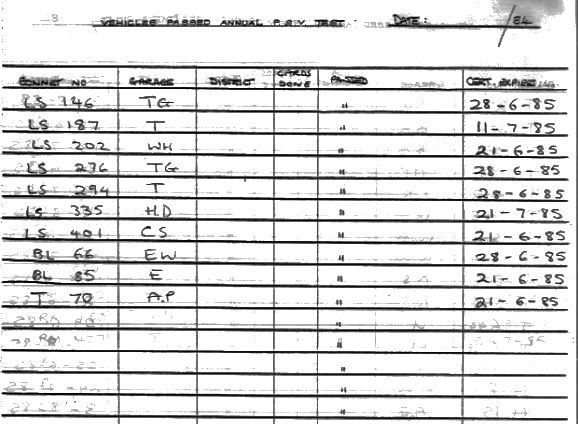 VEHICLES PASSED ANNUAL P.S.V. TEST DATE: /84
BONNET NO GARAGE DISTRICT CARDS DONE PASSED CERT. EXPIRES
LS 146 TG " 28-6-85
LS 187 T " 11-7-85
LS 202 WH " 21-6-85
LS 276 TG " 28-6-85
LS 294 T " 28-6-85
LS 335 H.D " 21-7-85
LS 401 CS " 21-6-85
BL 66 EW " 28-6-85
BL 85 E " 21-6-85
T 70 A.P " 21-6-85
"
"
"
"
"